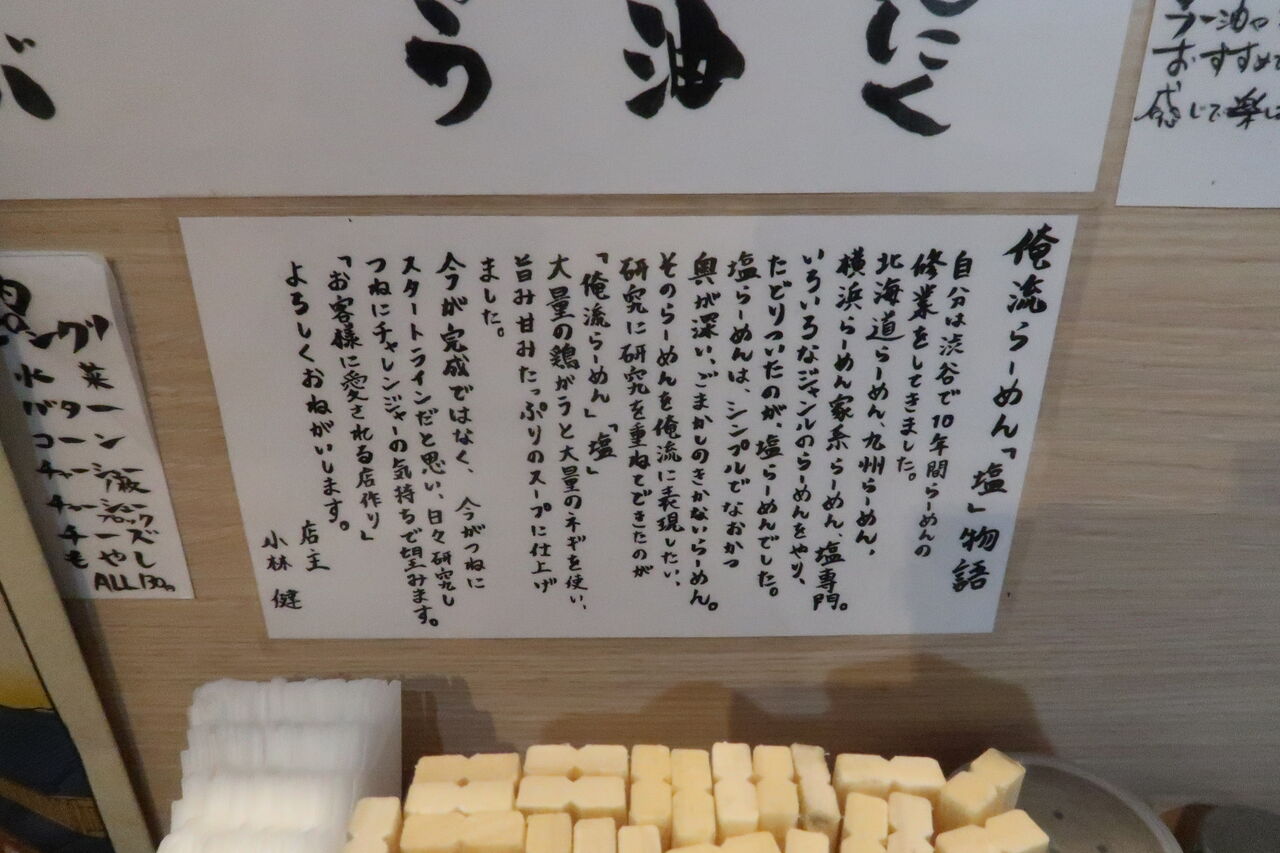 う
油
にく
ラー油や
おすすめで
感じで楽し
俺流らーめん「塩」物語
自分は渋谷で10年間らーめんの
修業をしてきました。
北海道らーめん、九州らーめん、
横浜らーめん家系らーめん、塩専門。
いろいろなジャンルのらーめんをやり、
たどりついたのが、塩らーめんでした。
塩らーめんは、シンプルでなおかつ
奥が深い、ごまかしのきかないらーめん。
そのらーめんを俺流に表現したい、
研究に研究を重ねてできたのが
「俺流らーめん」「塩」
大量の鶏がラと大量のネギを使い、
旨み甘みたっぷりのスープに仕上げ
ました。
今が完成ではなく、今がつねに
スタートラインだと思い、日々研究し
つねにチャレンジャーの気持ちで望みます。
「お客様に愛される店作り」
よろしくおねがいします。
店主
小林 健
水菜
バター
コーン
チャーシュー
チャーシュー
チーズ
もやし
ALL130円